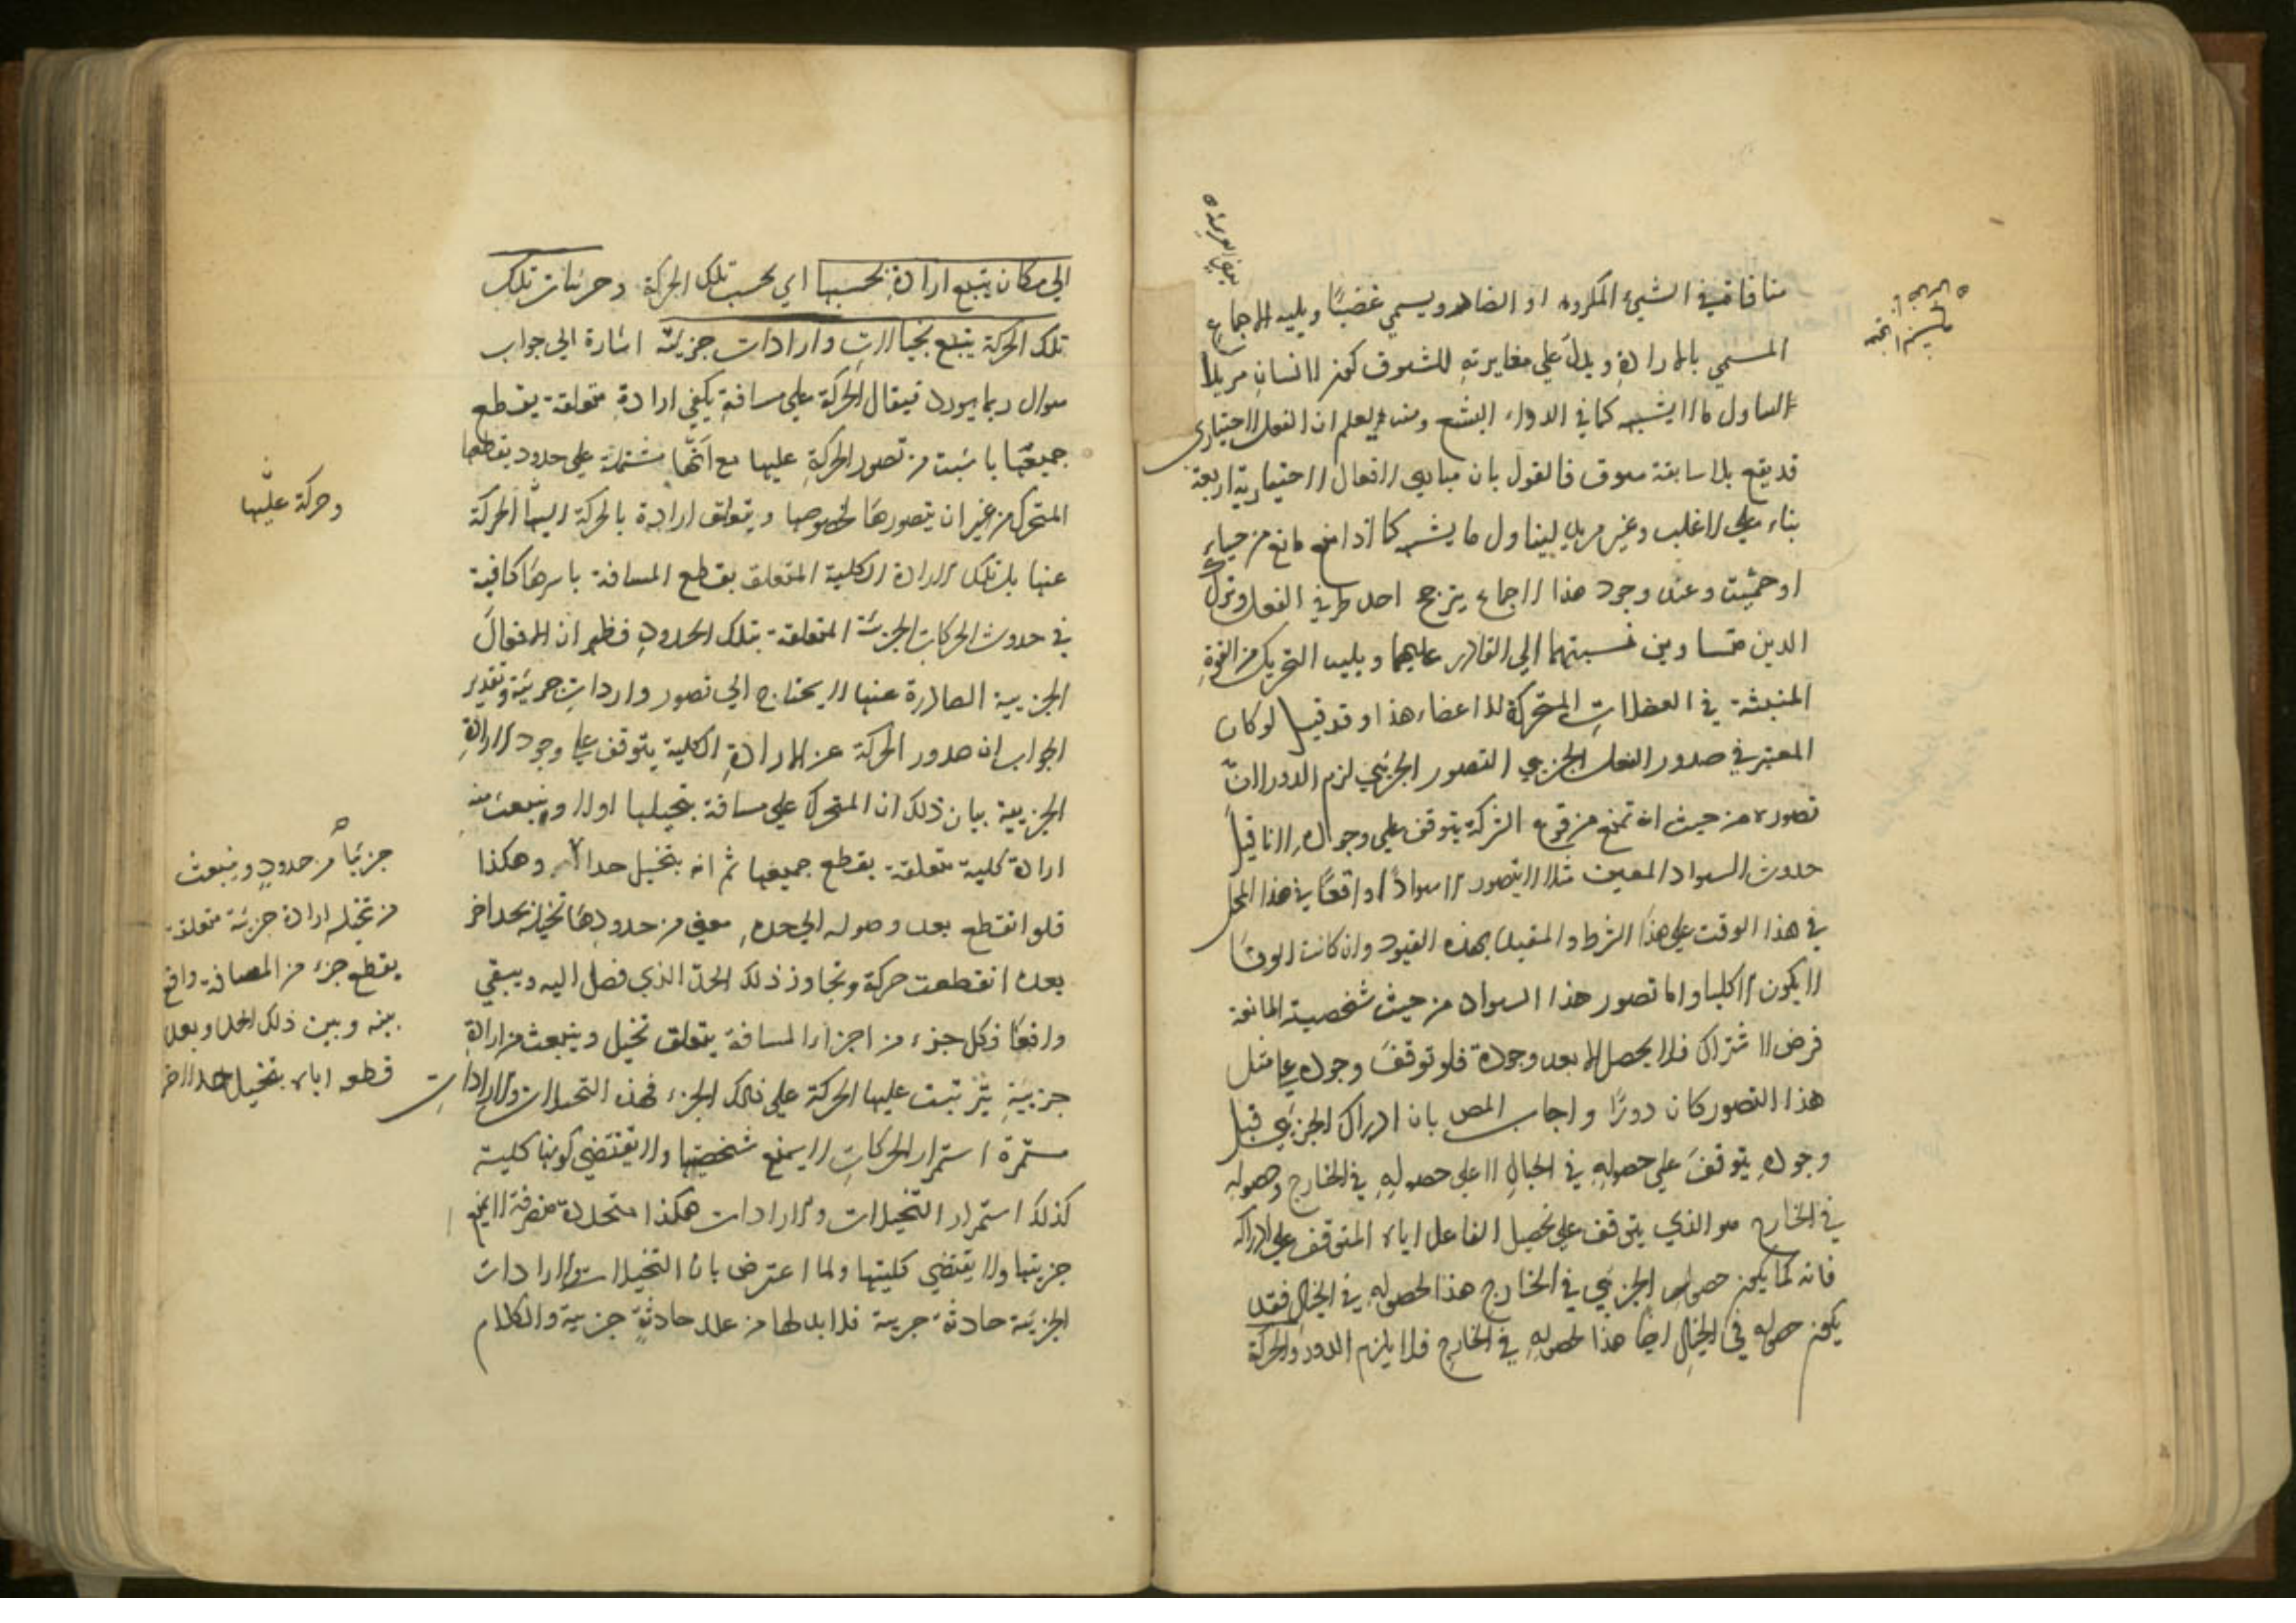 منافاة في الشيئ المكروه او الضار ويسمي غضبًا ويليه الاجماع
المسمي بالارادة ويدل علي مغايرته للشوق كون الانسان مريدا
لتناول ما لا يشتهيه كما في الدواء البشع ومنه يعلم ان الفعل الاختياري
قد يقع بلا سابقة شوق فالقول بان مبادي الافعال الاختيارية اربعة
بناء علي الاغلب وغير مريد ليناول ما يشتهيه كما اذا منع مانع من حياء
او حمية وعند وجود هذا الاجماع يترجح احد طرفي الفعل وترك
الذين متساوين نسبتهما الي القادر عليهما ويليه التحريك من القوة
المنبعثة في العضلات المتحركة للاعضاء هذا وقد قيل لو كان
المعتبر في صدور الفعل الجزيي التصور الجزئي لزم الدور لان
تصوره من حيث انه تمنع من وقوع الشركة يتوقف علي وجوده لانا قبل
حدوث السواد المعين مثلا لا نتصور الا سوادًا واقعًا في هذا المحل
في هذا الوقت علي هذا الشرط والمقيد بهذه القيود وان كانت الوفا
لا يكون الا كليا واما تصور هذا السواد من حيث شخصيته المانعة
فرض الاشتراك فلا يحصل الا بعد وجوده فلو توقف وجوده علي مثل
هذا التصور كان دورًا واجاب المص بان ادراك الجزيي قبل
وجوده يتوقف علي حصوله في الخيال لا علي حصوله في الخارج وحصوله
في الخارج هو الذي يتوقف علي تحصيل الفاعل اياه المتوقف علي ادراكه
فانه كما يكون حصول الجزيي في الخارج هذا لحصوله في الخيال فقد
يكون حصوله في الخيال ايضا هذا لحصوله في الخارج فلا يلزم الدور والحركة
الي مكان يتبع ارادة بحسبها اي بحسب تلك الحركة وجزئيات تلك
تلك الحركة يتبع تخيلات وارادات جزئية اشارة الي جواب
سوال ربما يورد فيقال الحركة علي مسافة يكفي ارادة متعلقة بقطع
جميعها من تصور الحركة عليها مع انها مشتملة علي حدود يقطعها
المتحرك من غير ان يتصورها بخصوصها ويتعلق ارادة بالحركة اليها الحركة
عنها بل تلك الارادة الكلية المتعلقة بقطع المسافة باسرها كافية
في حدوث الحركات الجزئية المتعلقة بتلك الحدود فظهر ان الافعال
الجزيية الصادرة عنها لا يحتاج الي تصور وارادات جزئية وتقدير
الجواب ان صدور الحركة عن الارادة الكلية يتوقف علي وجود الارادة
الجزيية بيان ذلك ان المتحرك علي مسافة يتخيلها اولا وينبعث منه
ارادة كلية متعلقة بقطع جميعها ثم انه يتخيل حدا وهكذا
فلو انقطع بعد وصوله الي حد معين من حدودها تخيله بحد اخر
بعده انقطعت حركة وتجاوز ذلك الحد الذي فصل اليه ويبقي
واقعًا فكل جزء من اجزاء المسافة يتعلق تخيل وينبعث من ارادة
جزيية يترتبت عليها الحركة علي ذلك الجزء فهذه التخيلات والارادات
مستمرة استمرار الحركات لا يمنع شخصيتها ولا يقتضي كونها كلية
كذلك استمرار التخيلات والارادات هكذا متجددة متصرفة لا يمنع
جزيتها ولا يقتضي كليتها ولما اعترض بان التخيلات والارادات
الجزيية حادثة جريية فلا بد لها من علل حادثة جزيية والكلام
وحركة عليها
جزئيًا من حدود وينبعث
من تخيله ارادة جزئية متعلقة
بقطع جزء من المصافة واقع
بينه وبين ذلك الحد وبعد
قطعه اياه يتخيل حدا اخر